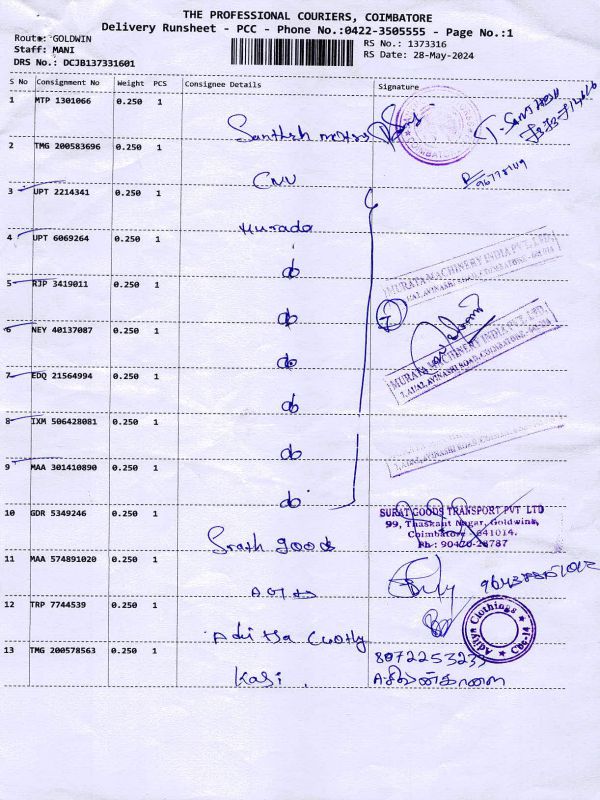 THE PROFESSIONAL COURIERS, COIMBATORE
Delivery Runsheet - PCC - Phone No.:0422-3505555 - Page No.:1
Route: GOLDWIN
Staff: MANI
DRS No.: DCJB137331601
RS No.: 1373316
RS Date: 28-May-2024
S No Consignment No Weight PCS Consignee Details Signature
1 MTP 1301066 0.250 1
Santhosh
2 TMG 200583696 0.250 1
CNV
3 UPT 2214341 0.250 1
Murada
4 UPT 6069264 0.250 1
do
5 RJP 3419011 0.250 1
do
6 NEY 40137087 0.250 1
do
7 EDQ 21564994 0.250 1
do
8 IXM 506428081 0.250 1
do
9 MAA 301410890 0.250 1
do
MURATA MACHINERY INDIA PVT. LTD.
AVINASHI ROAD, COIMBATORE
7
MURATA MACHINERY INDIA PVT. LTD.
AVINASHI ROAD, COIMBATORE
10 GDR 5349246 0.250 1
SURAT GOODS TRANSPORT PVT LTD
99, Thaskant Nagar, Goldwins,
Coimbatore - 641014.
Ph : 90470-28787
Srath goods
11 MAA 574891020 0.250 1
12 TRP 7744539 0.250 1
Aditya Clothings
Cbe-14
13 TMG 200578563 0.250 1
Kasi